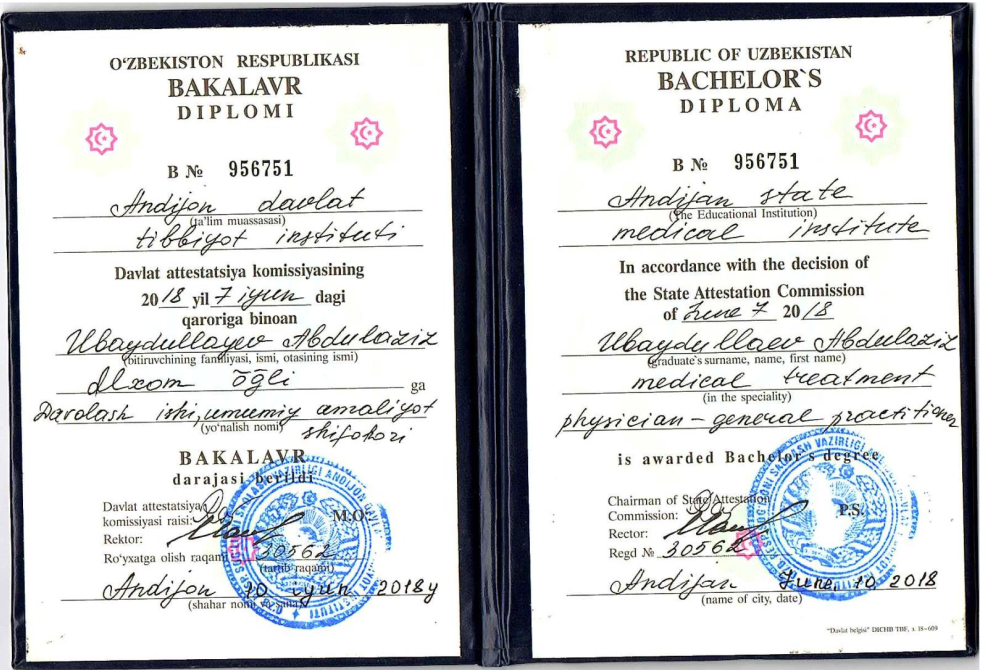 O‘ZBEKISTON RESPUBLIKASI
BAKALAVR
DIPLOMI
B № 956751
Andijon davlat
(ta’lim muassasasi)
tibbiyot instituti
Davlat attestatsiya komissiyasining
2018 yil 7 iyun dagi
qaroriga binoan
Ubaydullayev Abdulaziz
(bitiruvchining familiyasi, ismi, otasining ismi)
Ilxom o‘g‘li ga
Davolash ishi, umumiy amaliyot
(yo‘nalish nomi) shifokori
BAKALAVR
darajasi berildi
Davlat attestatsiya
komissiyasi raisi:
M.O‘.
Rektor:
Ro‘yxatga olish raqami 30562
(tartib raqami)
Andijon 10 iyun 2018y
(shahar nomi, sana)
REPUBLIC OF UZBEKISTAN
BACHELOR`S
DIPLOMA
B № 956751
Andijan state
(The Educational Institution)
medical institute
In accordance with the decision of
the State Attestation Commission
of June 7 2018
Ubaydullaev Abdulaziz
(graduate's surname, name, first name)
medical treatment
(in the speciality)
physician-general practitioner
is awarded Bachelor's degree
Chairman of State Attestation
Commission:
P.S.
Rector:
Regd № 30562
Andijan June, 10, 2018
(name of city, date)
"Davlat belgisi" DICHB TBF, z. 18-609